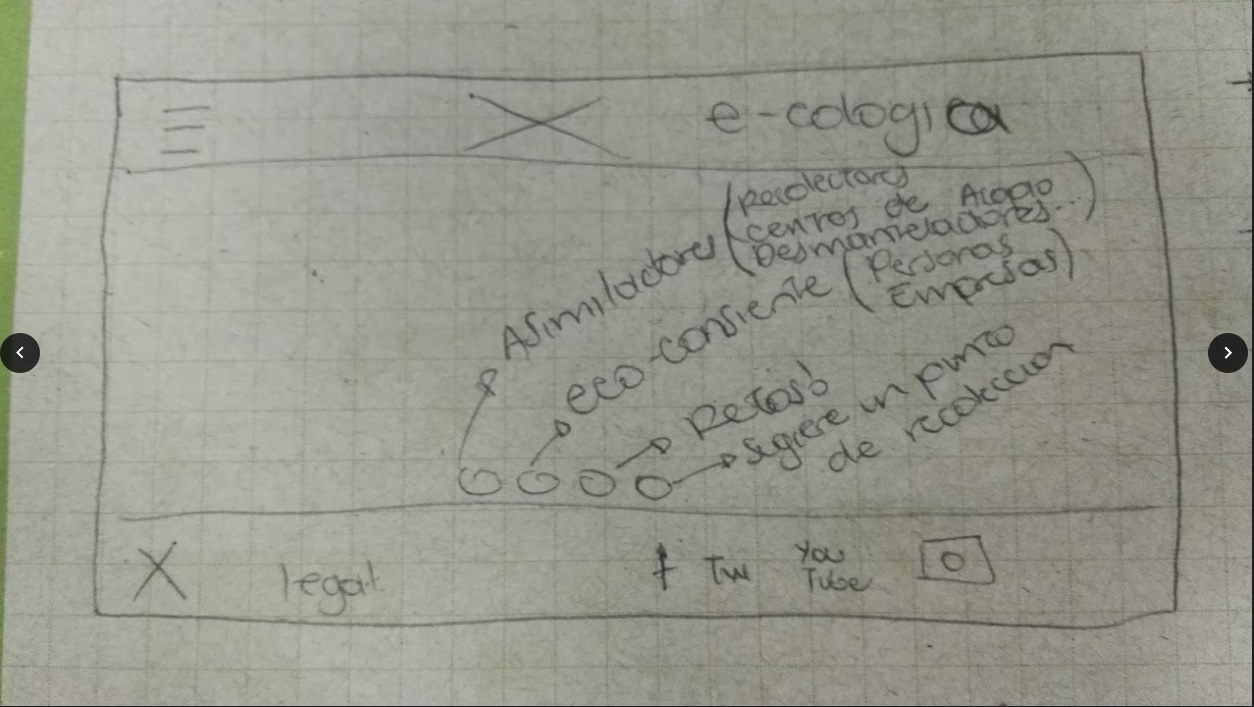 e-cologica
Asimiladores (Recolectores
Centros de Acopio
Desmanteladores...)
eco-consiente (Personas
Empresas)
Retos!
sugiere un punto
de recolección
legal
f Tw You
Tube